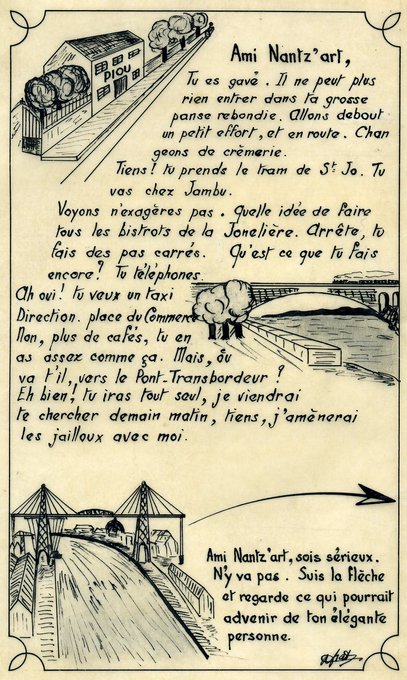 PIOU
Ami Nantz'art,
Tu es gavé. Il ne peut plus
rien entrer dans ta grosse
panse rebondie. Allons debout
un petit effort, et en route. Chan
geons de crèmerie.
Tiens! tu prends le tram de St Jo. Tu
vas chez Jambu.
Voyons n'exagères pas. Quelle idée de faire
tous les bistrots de la Jonelière. Arrête, tu
fais des pas carrés. Qu'est ce que tu fais
encore? Tu téléphones
Ah oui! tu veux un taxi
Direction. place du Commerce
Non, plus de cafés, tu en
as assez comme ça. Mais, où
va t'il, vers le Pont-Transbordeur?
Eh bien! tu iras tout seul, je viendrai
te chercher demain matin, tiens, j'amènerai
les jailloux avec moi.
Ami Nantz'art, sois sérieux.
N'y va pas. Suis la flèche
et regarde ce qui pourrait
advenir de ton élégante
personne.